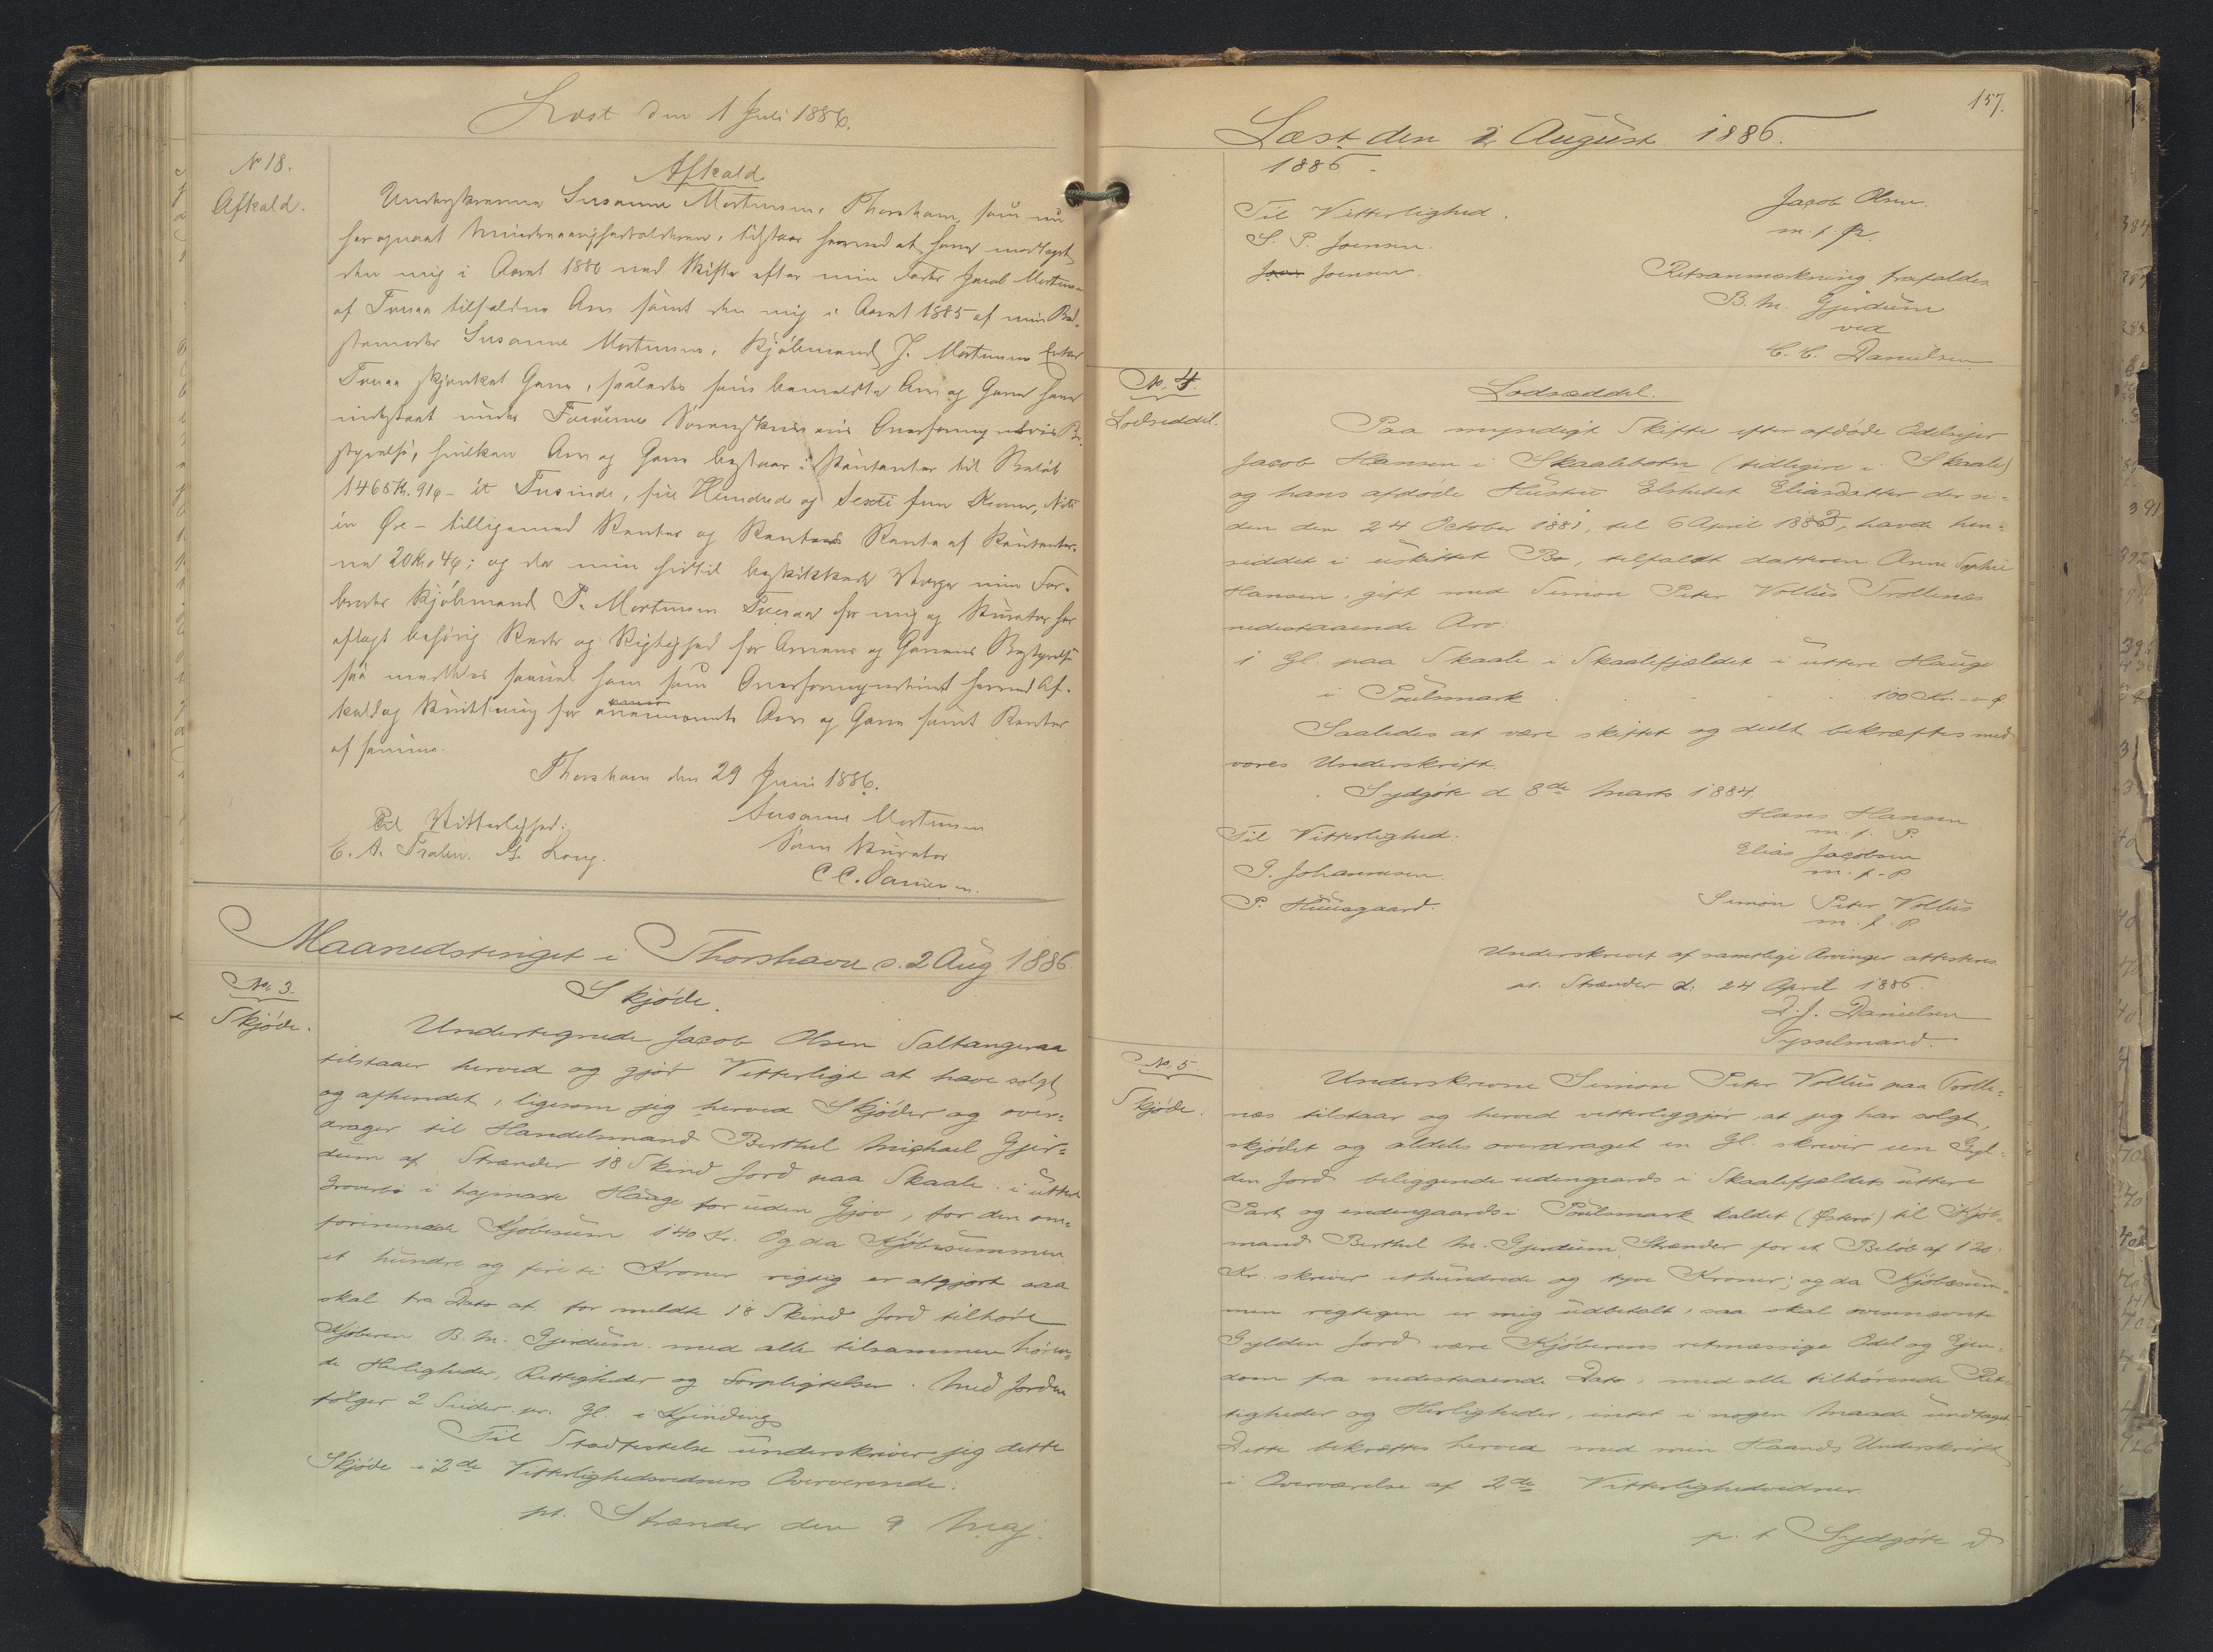 Læst den 1 Juli 1886.
No 18.
Afkald.
Afkald
Underskrevne Susanne Mortensen, Thorshavn, som nu
har opnaaet Mindreaarighedsalderen, tilstaar herved at have modtaget
den mig i Aaret 1880 ved Skifte efter min Fader Jacob Mortensen
af Tveraa tilfaldne Arv samt den mig i Aaret 1885 af min Bed-
stemoder Susanne Mortensen, Kjøbmand J. Mortensens Enke
Tveraa skjænket Gave, saaledes som bemeldte Arv og Gave have
indestaaet under Færøernes Sorenskriveris Overformynderis Be-
styrelse, hvilken Arv og Gave bestaar i Kontanter til Beløb
1465 Kr. 91 ø - ét Tusinde, fire Hundrede og Sexti fem Kroner, Niti
én Øre - tilligemed Renter og Renters Rente af Kontanter-
ne 20 Kr. 4 ø; og da min hidtil beskikkede Værge min Far-
broder Kjøbmand P. Mortensen Tveraa for mig og Kurator har
aflagt behørig Rede og Rigtighed for Arvens og Gavens Bestyrelse
saa meddeles saavel ham som Overformynderiet herved Af-
kald og Kvittering for ovennævnte Arv og Gave samt Renter
af samme.
Thorshavn den 29 Juni 1886.
Til Vitterlighed: Susanne Mortensen
E. A. Frælen. G. Long. Som Kurator
C C. Danielsen.
Maanedstinget i Thorshavn d. 2 Aug 1886
No. 3.
Skjøde.
Skjøde.
Undertegnede Jacob Olsen Saltangeraa
tilstaaer herved og gjør Vitterligt at have solgt
og afhendet, ligesom jeg herved Skjøder og over-
drager til Handelsmand Berthel Michael Gjer-
dum af Strænder 18 Skind Jord paa Skaale i uttere
i Hauge for uden Gjov, for den om-
forenende Kjøbesum 140 Kr. Og da Kjøbesummen
et hundre og fireti Kroner rigtig er afgjort saa
skal fra Dato af for meldte 18 Skind Jord tilhøre
Kjøberen B. M. Gjerdum med alle tilsammen høren-
de Herligheder, Rettigheder og Forpligtelser. Med Jorden
følger 2 Suder pr. Gl. i
Til Stadfestelse underskriver jeg dette
Skjøde i 2de Vitterlighedsvidners Oververende.
pt. Strænder den 9 Maj.
157.
Læst den 2 August 1886.
1886.
Til Vitterlighed. Jacob Olsen
S. P. Joensen. m. f. P.
Joensen. Retsanmærkning frafaldes
B. M. Gjerdum
ved
C. C. Danielsen
No. 4.
Lodseddel.
Lodsæddel.
Paa myndigt Skifte efter afdøde Odelsejer
Jacob Hansen i Skaalebotn (tidligere i Skaale)
og hans afdøde Hustru Elsbebet Eliasdatter der si-
den den 24 October 1881, til 6 April 1883, havde hen-
siddet i uskiftet Bo, tilfaldt datteren Anne Sophie
Hansen, gift med Simon Peter Vollus Trollenæs
nedestaaende Arv:
1 Gl. paa Skaale i Skaalefjældet i uttere Hauge
i Poulsmark . . . 100 Kr. - " ø
Saaledes at være skiftet og deelt bekræftes med
vores Underskrift.
Sydgøte d 8de Marts 1884.
Til Vitterlighed. Hans Hansen
m. f. P.
J. Johannesen. Elias Jacobsen
m. f. P.
P. Huusgaard. Simon Peter Vollus
m. f. P
Underskrevet af samtlige Arvinger attesteres
pt. Strænder d. 24 April 1886.
D. J. Danielsen
Sysselmand.
No. 5
Skjøde.
Underskrevne Simon Peter Vollus paa Trolle-
næs tilstaar og herved vitterliggjør at jeg har solgt,
skjødet og aldeles overdraget en Gl. skriver een Gyl-
den Jord beliggende udengaards i Skaalefjældets uttere
Part og indengaards i Poulsmark kaldet (Østrø) til Kjøb-
mand Berthel M. Gjerdum, Strænder for et Beløb af 120
Kr. skriver ethundrede og tyve Kroner; og da Kjøbesum-
men rigtigen er mig udbetalt, saa skal ovennævnte
Gylden Jord være Kjøberens retmæssige Odel og Ejen-
dom fra nedestaaende Dato, med alle tilhørende Ret-
tigheder og Herligheder, intet i nogen Maade undtaget.
Dette bekræftes herved med min Haands Underskrift
i Overværelse af 2de Vitterlighedvidner.
p. t Sydgøte d